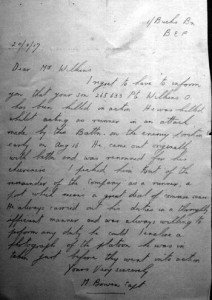 1/Bucks Bn
B.E.F
22/8/17
Dear Mr Wilkins
I regret to have to inform
you that your son 265 Pte Wilkins
has been killed in action. He was killed
whilst acting as runner in an attack
made by the Battn. on the enemy's position
early on Aug 16. He came out originally
with battn and was renowned for his
cheeriness. I picked him out of the
remainder of the Company as a runner, a
post which means a good deal of
He always carried out his duties in a thoroughly
efficient manner and was always willing to
perform any duty he could. I enclose a
photograph of the platoon he was in
taken just before they went into action
Yours Very sincerely
Capt